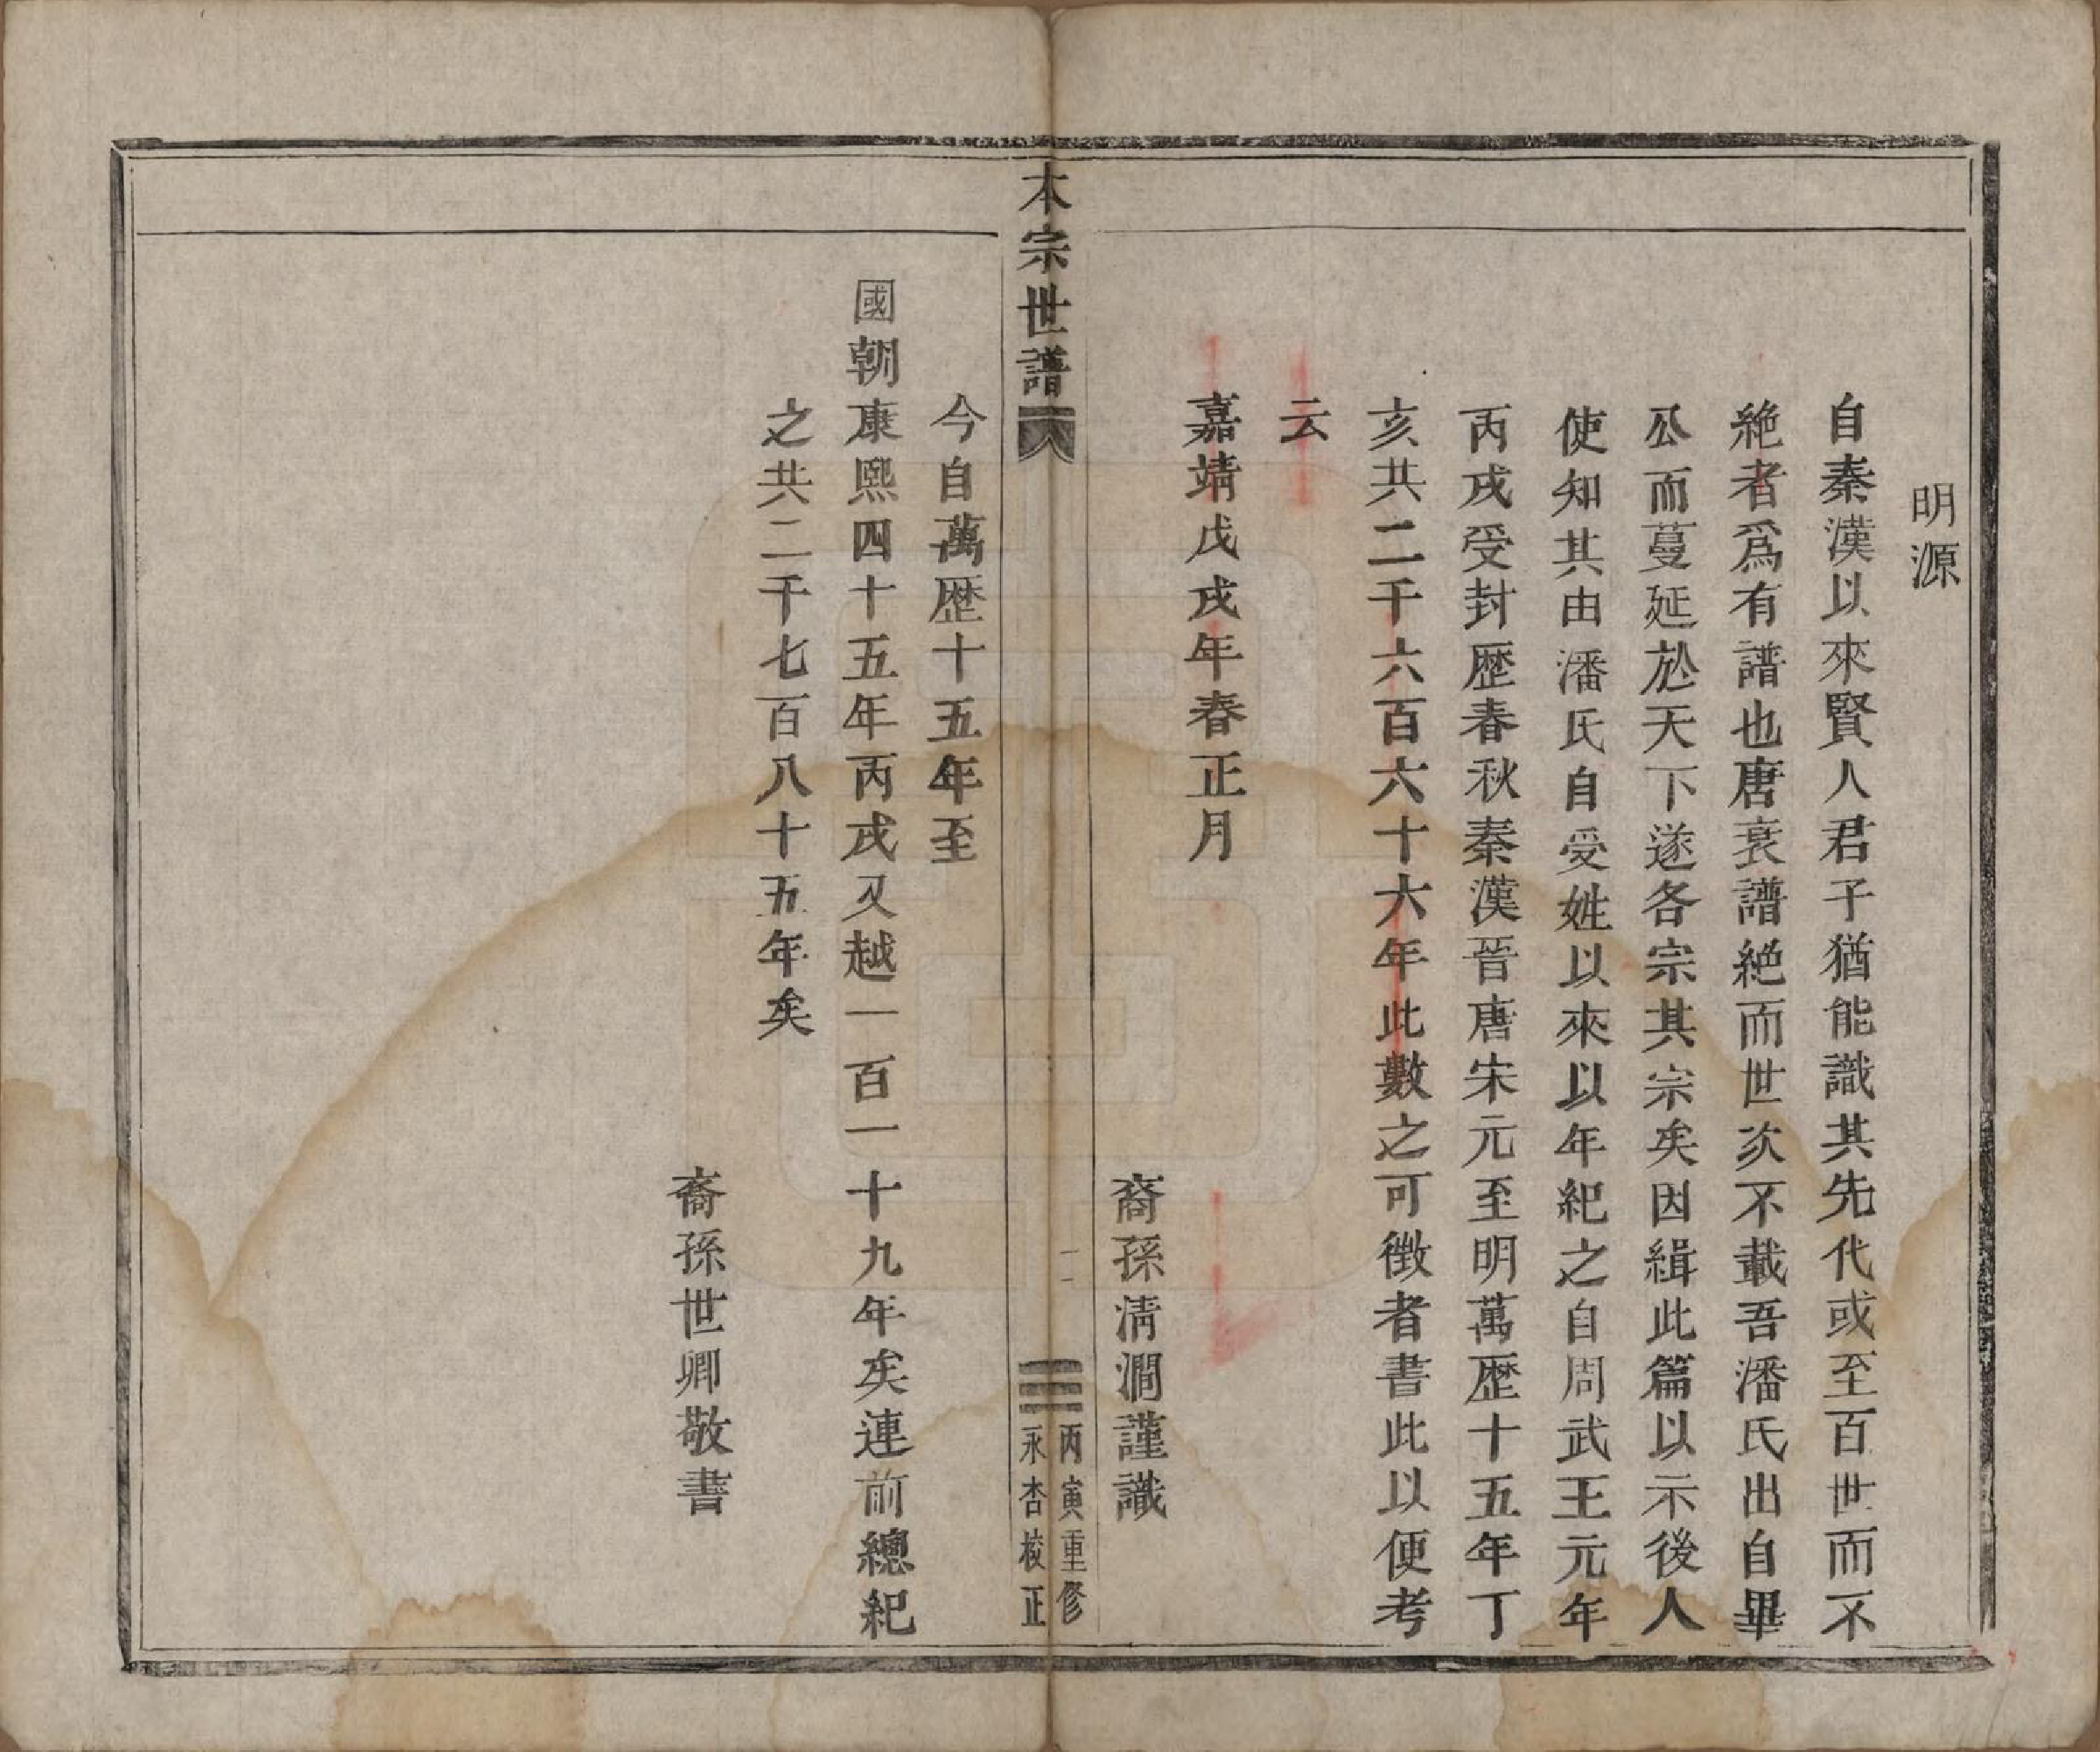 明源
自秦漢以來賢人君子猶能識其先代或至百世而不
絶者爲有譜也唐衰譜絶而世次不載吾潘氏出自畢
公而蔓延於天下遂各宗其宗矣因緝此篇以示後人
使知其由潘氏自受姓以來以年紀之自周武王元年
丙戌受封歷春秋秦漢晉唐宋元至明萬歷十五年丁
亥共二千六百六十六年此數之可徴者書此以便考
云
嘉靖戊戌年春正月
裔孫淸澗謹識
本宗世譜
一一
丙寅重修
永杏校正
今自萬歷十五年至
國朝康熙四十五年丙戌又越一百一十九年矣連前總紀
之共二千七百八十五年矣
裔孫世卿敬書